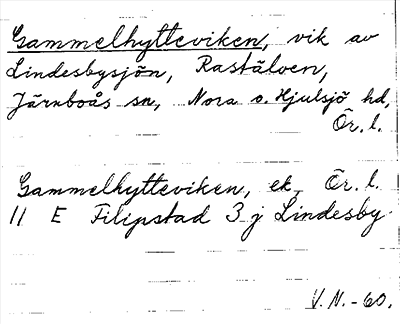 Gammelhytteviken, vik av
Lindesbysjön, Rastälven,
Järnboås sn, Nora o. Hjulsjö hd,
Ör. l.
Gammelhytteviken, ek. Ör. l.
11 E Filipstad 3 j Lindesby
V. N. -60.